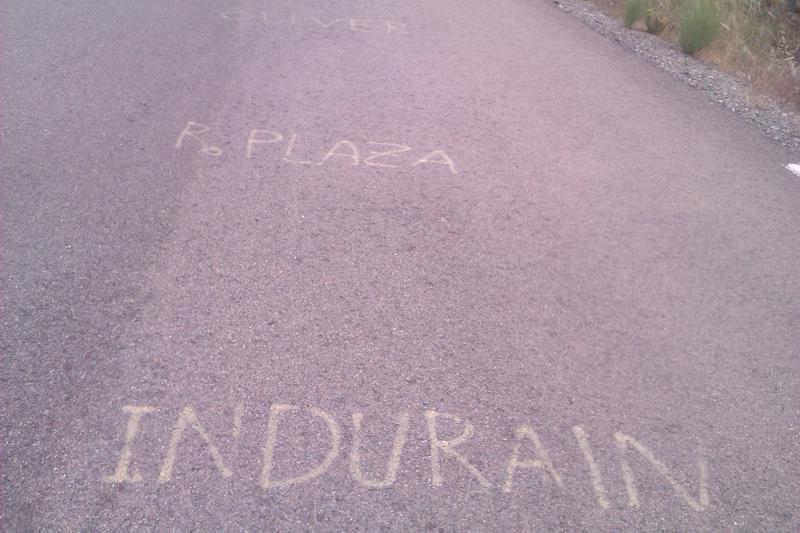 OLIVER
R. PLAZA
INDURAIN